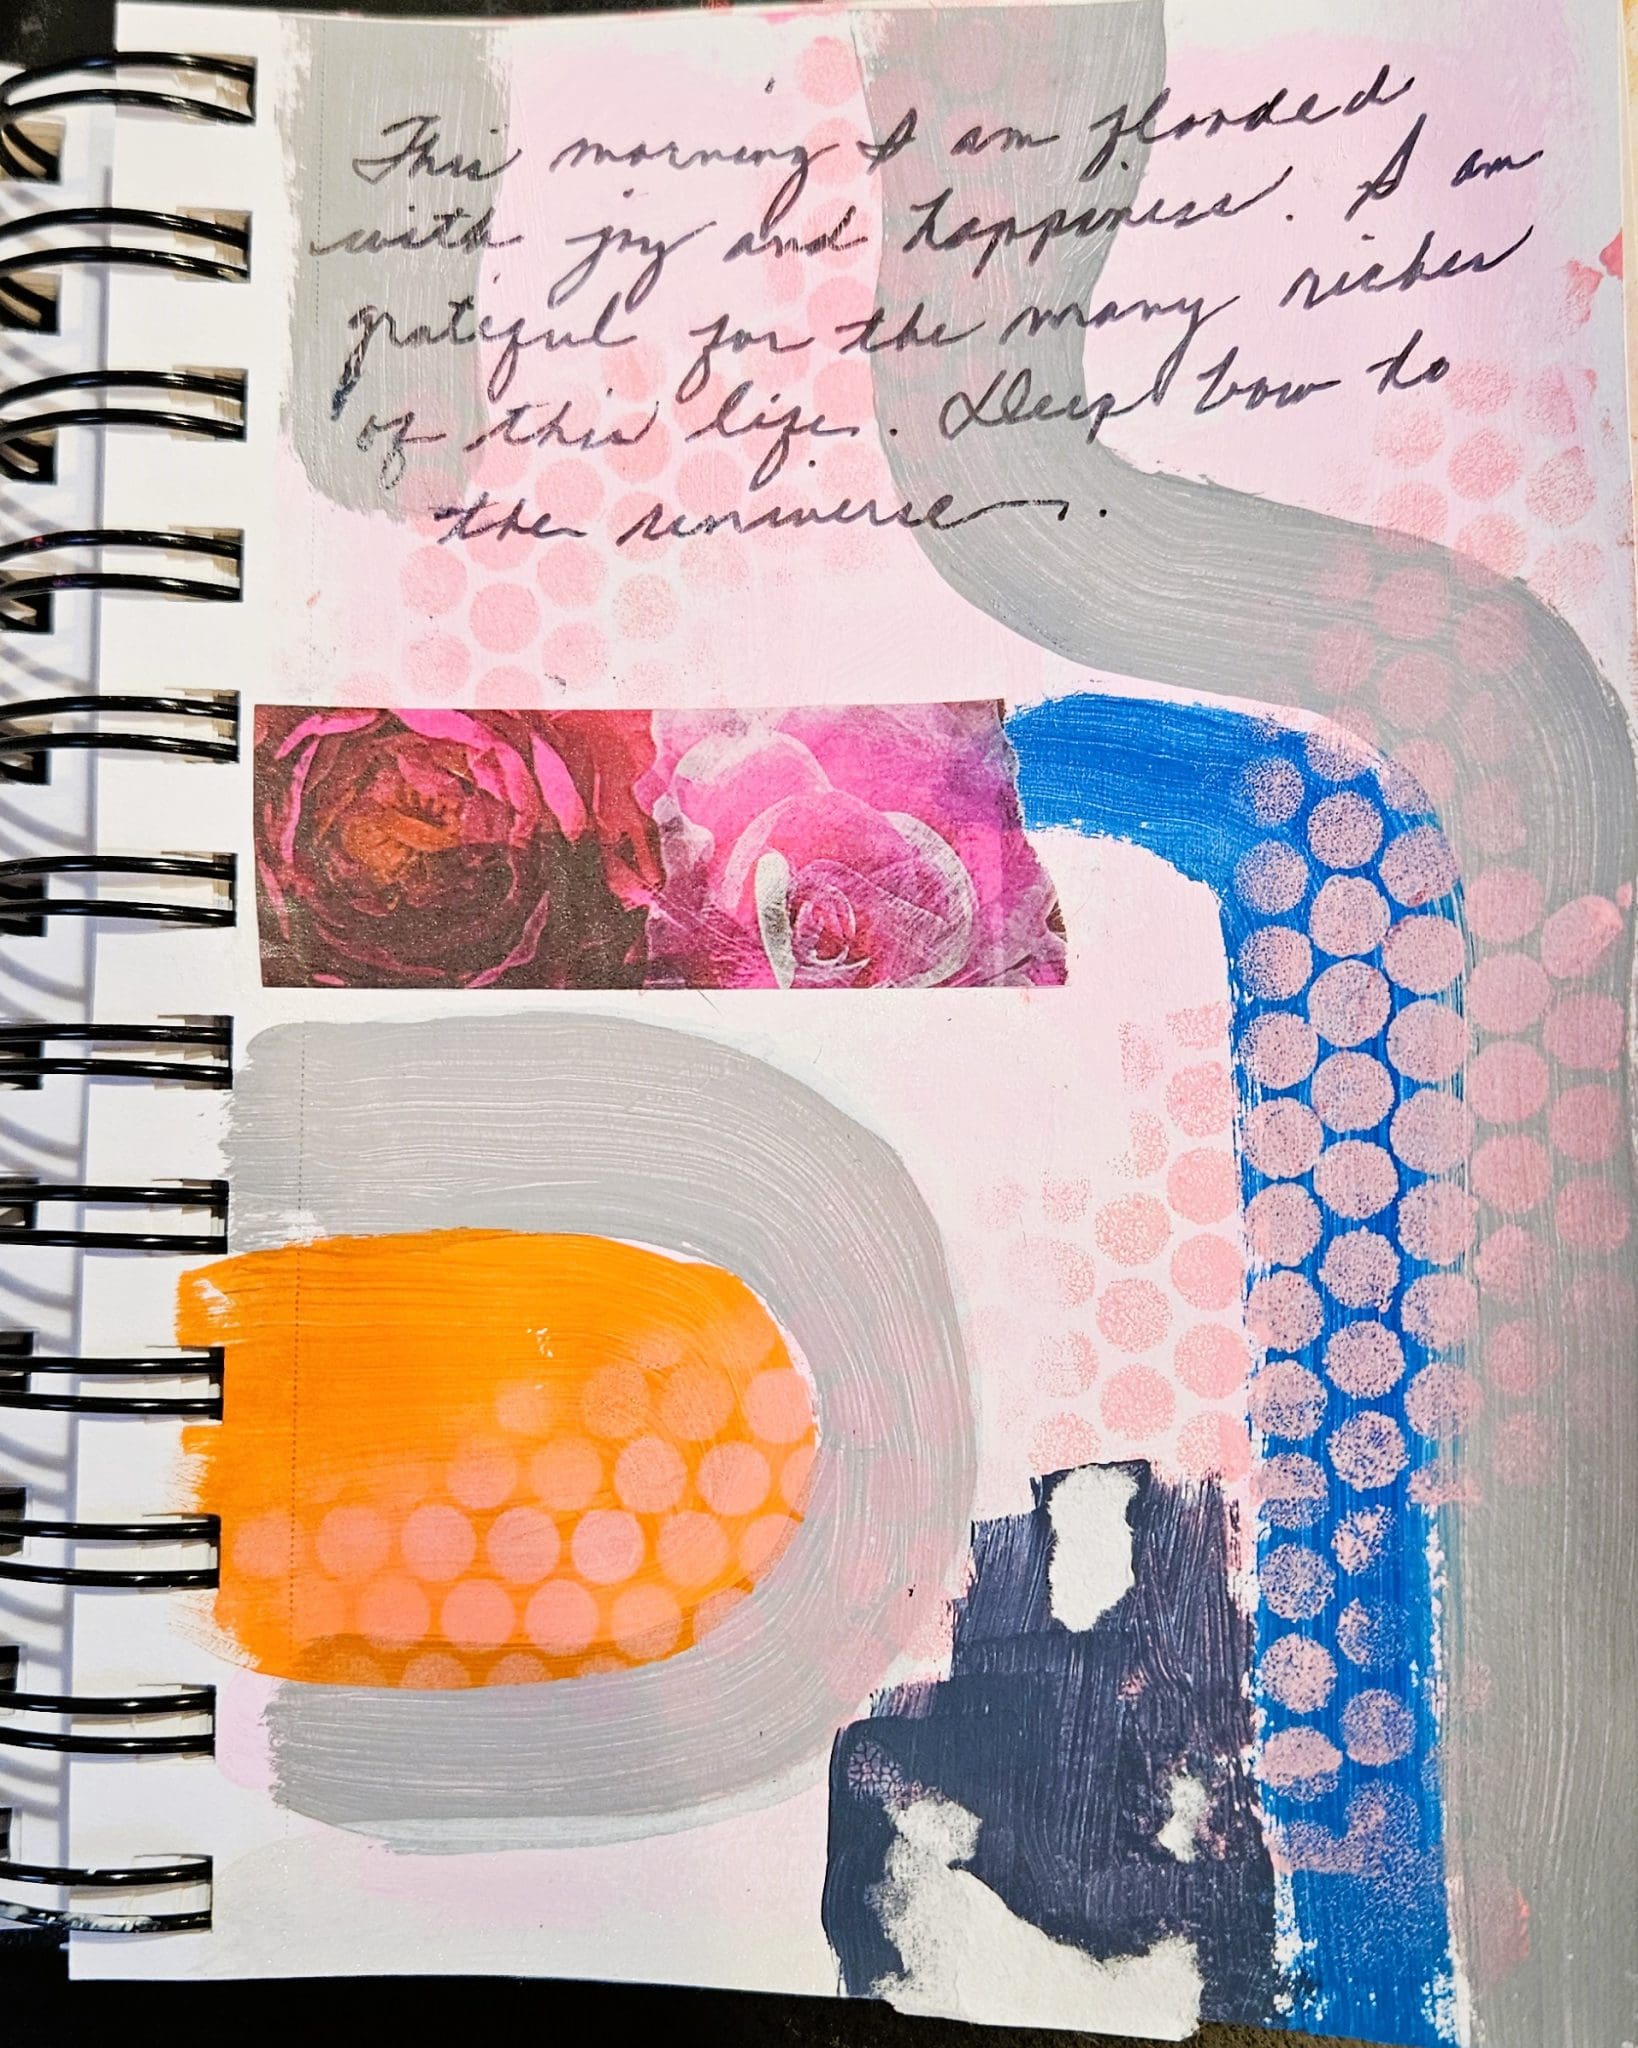 This morning I am flooded
with joy and happiness. I am
grateful for the many riches
of this life. Deep bow to
the universe.